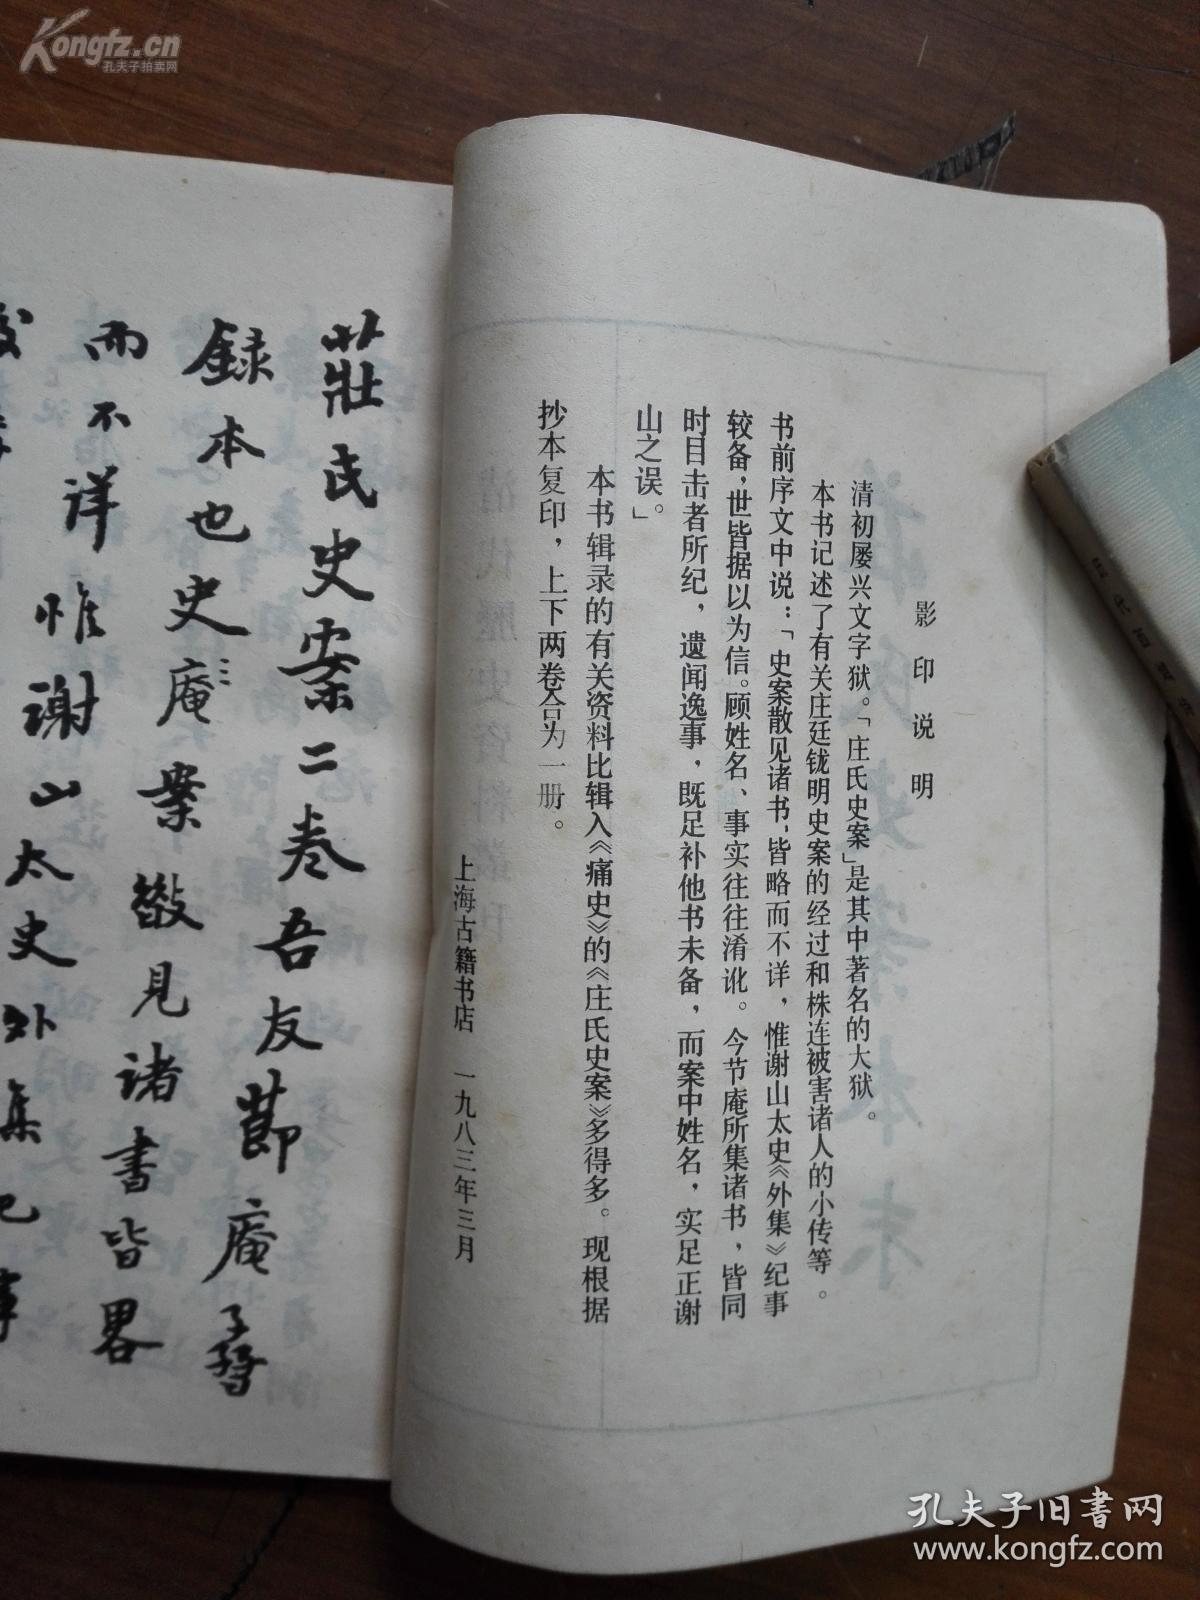 Kongfz.cn
孔夫子拍卖网
影印说明
清初屡兴文字狱。「庄氏史案」是其中著名的大狱。
本书记述了有关庄廷鑨明史案的经过和株连被害诸人的小传等。
书前序文中说：「史案散见诸书，皆略而不详，惟谢山太史《外集》纪事
较备，世皆据以为信。顾姓名、事实往往淆讹。今节庵所集诸书，皆同
时目击者所纪，遗闻逸事，既足补他书未备，而案中姓名，实足正谢
山之误。」
本书辑录的有关资料比辑入《痛史》的《庄氏史案》多得多。现根据
抄本复印，上下两卷合为一册。
上海古籍书店 一九八三年三月
莊氏史案二卷吾友節庵
録本也史案散見諸書皆畧
而不详惟谢山太史外集
庄氏史案本末
清代歷史资料叢刊
孔夫子旧书网
www.kongfz.com